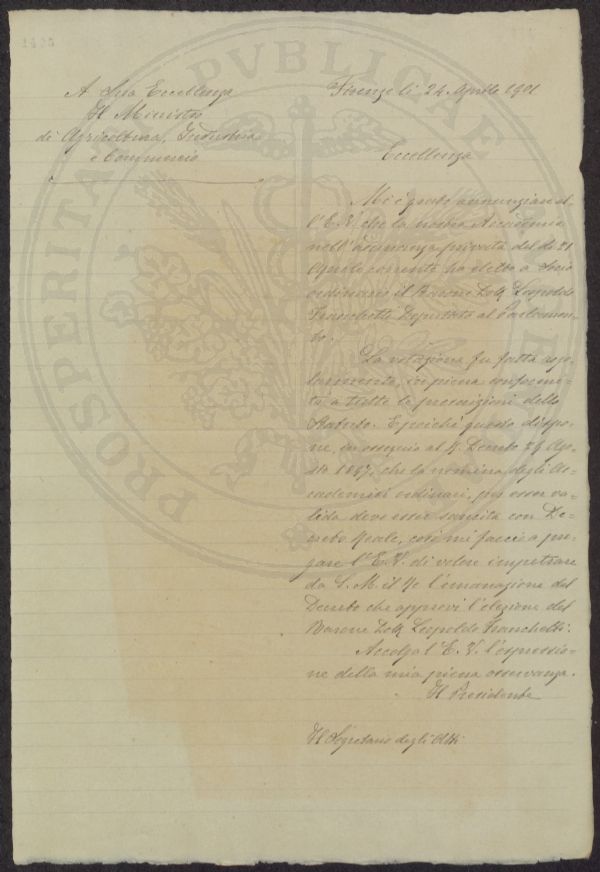 A Sua Eccellenza
Il Ministro
di Agricoltura, Industria
e Commercio
Firenze li 24 Aprile 1901
Eccellenza
Mi è grato annunziare al=
l'E. V. che la nostra Accademia
nell'adunanza privata del dì 21
Aprile corrente ha eletto a Socio
ordinario il Barone Dott. Leopoldo
Franchetti Deputato al Parlamen=
to.
La votazione fu fatta rego=
larmente, in piena conformi=
tà a tutte le prescrizioni dello
Statuto. E poichè questo dispo=
ne, in ossequio al R. Decreto 29 Ago=
sto 1867, che la nomina degli Ac=
cademici ordinari, per esser va=
lida deve esser sancita con De=
creto Reale, così mi faccio a pre=
gare l'E. V. di volere impetrare
da S. M. il Re l'emanazione del
Decreto che approvi l'elezione del
Barone Dott. Leopoldo Franchetti.
Accolga l'E. V. l'espressio=
ne della mia piena osservanza.
Il Presidente
Il Segretario degli Atti
PROSPERITA PVBLICAE